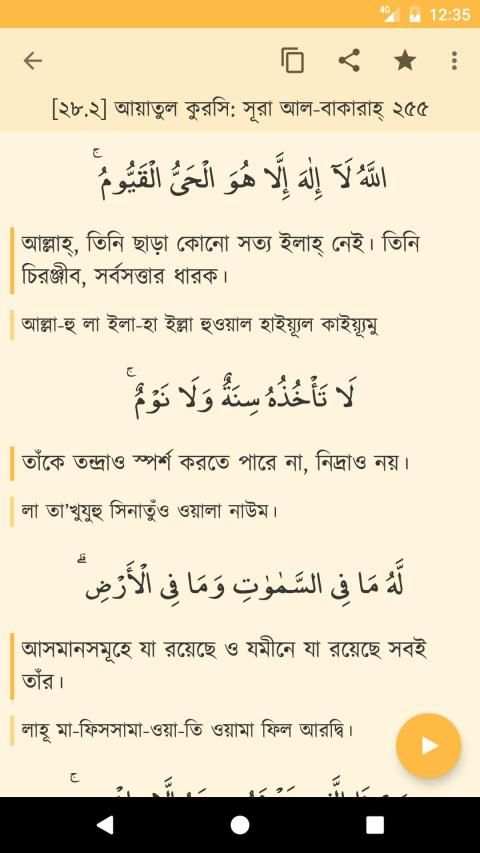 4G 12:35
[২৮.২] আয়াতুল কুরসি: সূরা আল-বাকারাহ্ ২৫৫
اللَّهُ لَآ إِلٰهَ إِلَّا هُوَ الْحَىُّ الْقَيُّومُ ۚ
আল্লাহ্, তিনি ছাড়া কোনো সত্য ইলাহ্ নেই। তিনি
চিরঞ্জীব, সর্বসত্তার ধারক।
আল্লা-হু লা ইলা-হা ইল্লা হুওয়াল হাইয়্যূল কাইয়্যূমু
لَا تَأْخُذُهُ سِنَةٌ وَلَا نَوْمٌ ۚ
তাঁকে তন্দ্রাও স্পর্শ করতে পারে না, নিদ্রাও নয়।
লা তা'খুযুহু সিনাতুঁও ওয়ালা নাউম।
لَّهُ مَا فِى السَّمٰوٰتِ وَمَا فِى الْأَرْضِ ۗ
আসমানসমূহে যা রয়েছে ও যমীনে যা রয়েছে সবই
তাঁর।
লাহূ মা-ফিসসামা-ওয়া-তি ওয়ামা ফিল আরদ্বি।